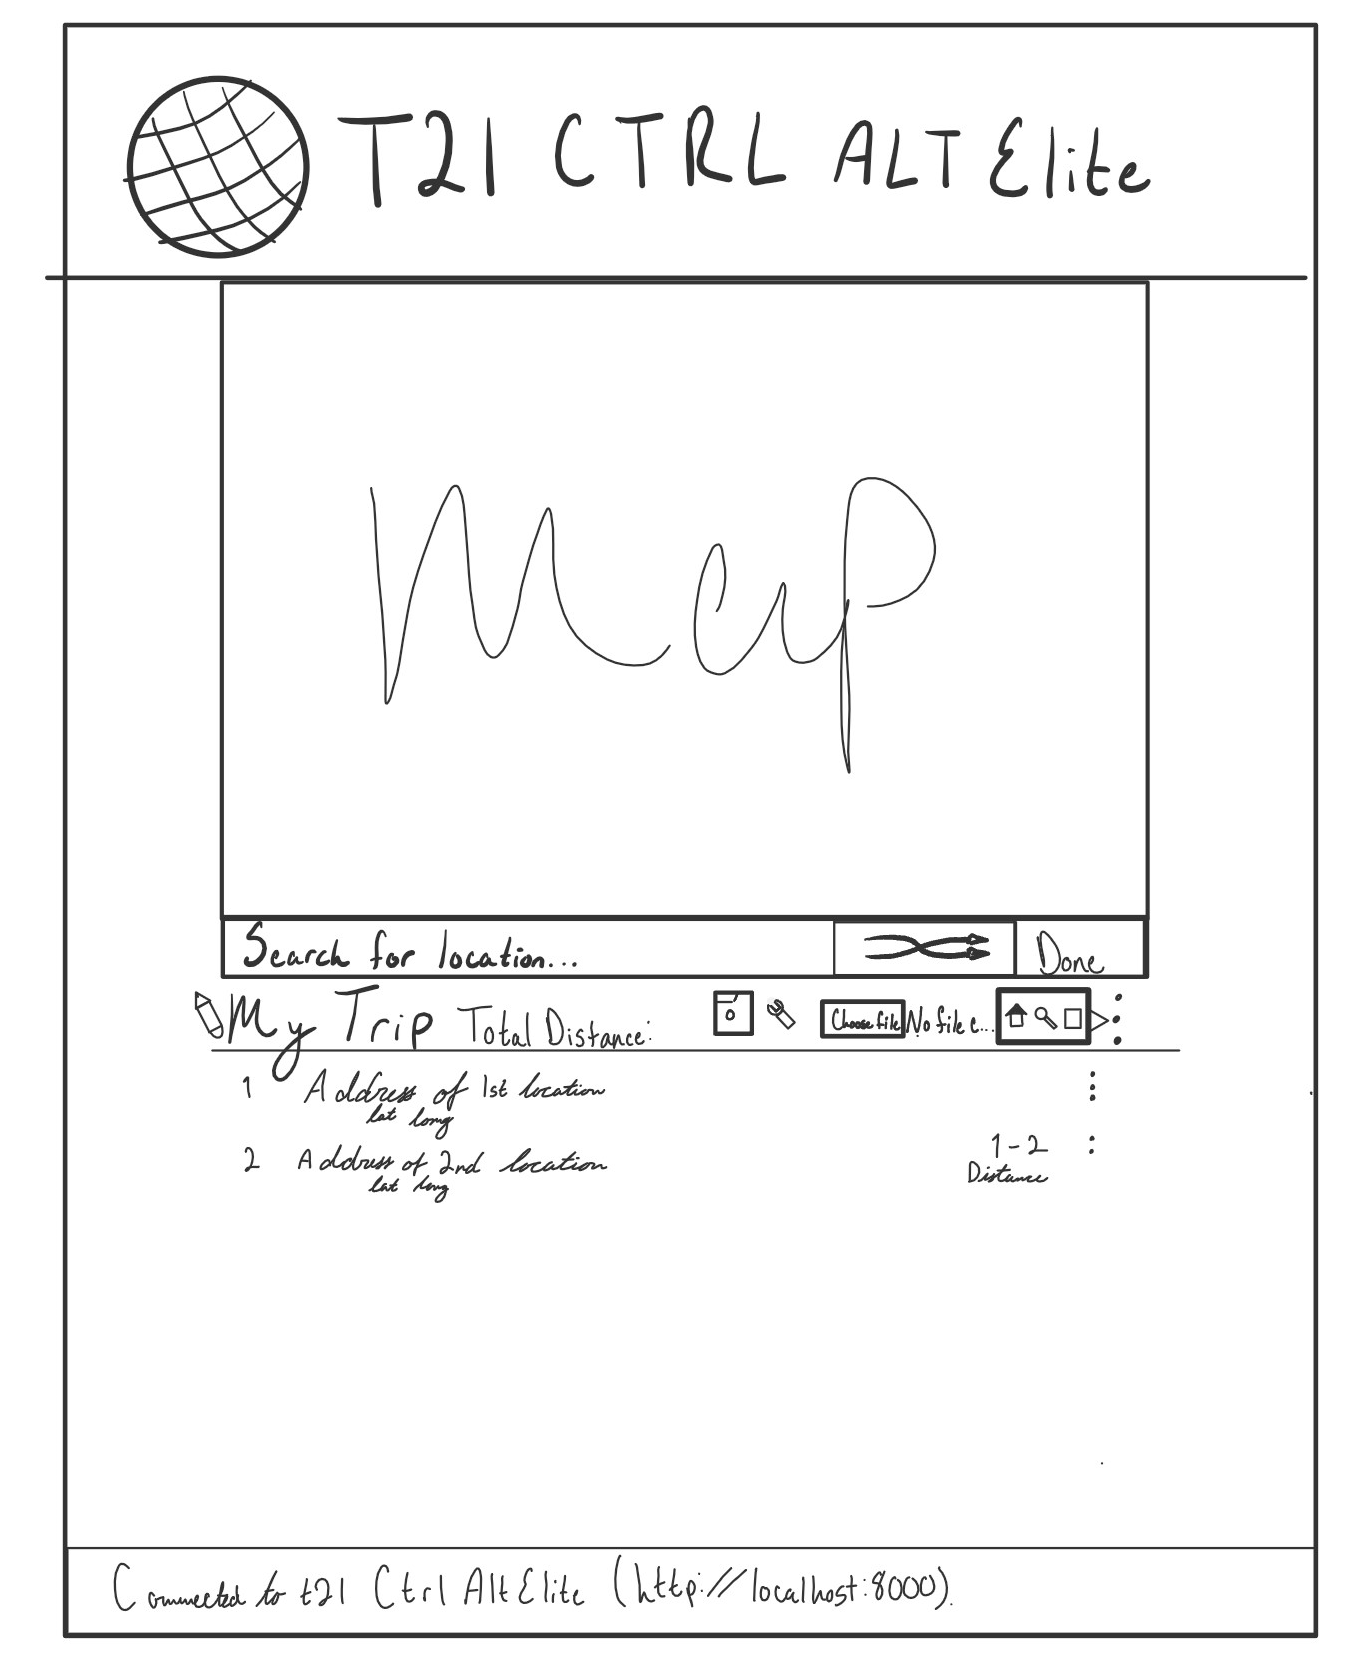 T21 CTRL ALT Elite
Map
Search for location... Done
My Trip Total Distance: Choose file No file c...
1 Address of 1st location
lat long
2 Address of 2nd location 1-2
lat long Distance
Connected to t21 Ctrl Alt Elite (http://localhost:8000).